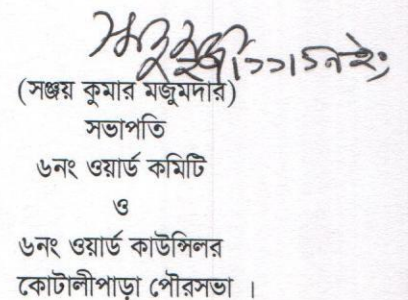 (সঞ্জয় কুমার মজুমদার)
সভাপতি
৬নং ওয়ার্ড কমিটি
ও
৬নং ওয়ার্ড কাউন্সিলর
কোটালীপাড়া পৌরসভা ।